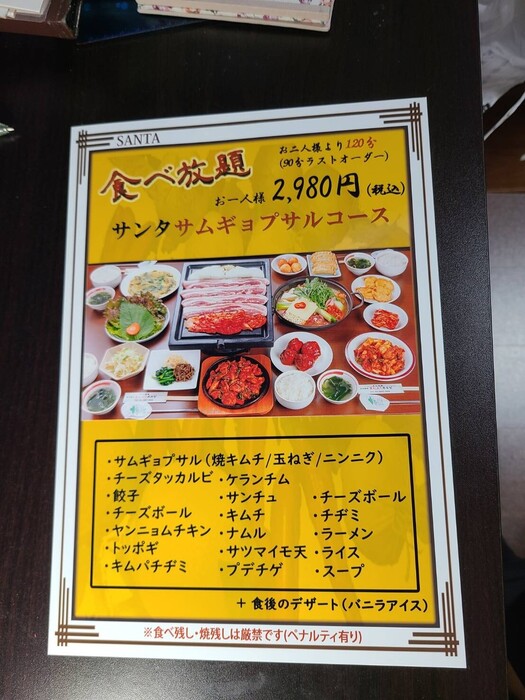 SANTA
食べ放題
お二人様より120分
(90分ラストオーダー)
お一人様 2,980円(税込)
サンタサムギョプサルコース
・サムギョプサル(焼キムチ/玉ねぎ/ニンニク)
・チーズタッカルビ ・ケランチム
・餃子 ・サンチュ ・チーズボール
・チーズボール ・キムチ ・チヂミ
・ヤンニョムチキン ・ナムル ・ラーメン
・トッポギ ・サツマイモ天 ・ライス
・キムパチヂミ ・プデチゲ ・スープ
+ 食後のデザート(バニラアイス)
※食べ残し・焼残しは厳禁です(ペナルティ有り)